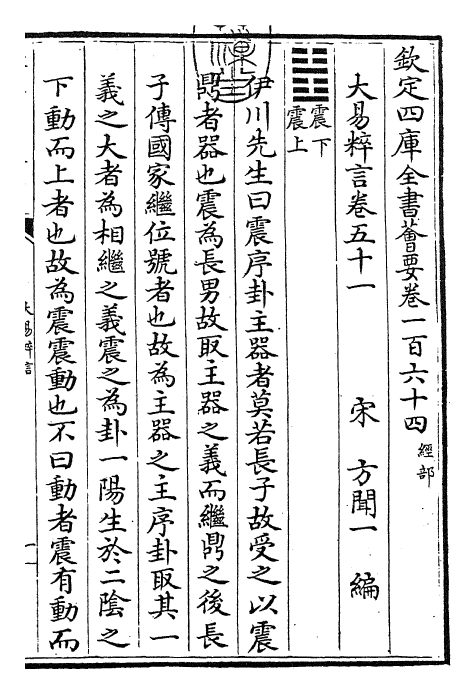 欽定四庫全書薈要卷一百六十四 經部
大易粹言卷五十一 宋 方聞一 編
䷲ 震下 震上
伊川先生曰震序卦主器者莫若長子故受之以震
鼎者器也震為長男故取主器之義而繼鼎之後長
子傳國家繼位號者也故為主器之主序卦取其一
義之大者為相繼之義震之為卦一陽生於二陰之
下動而上者也故為震震動也不曰動者震有動而
大易粹言
一